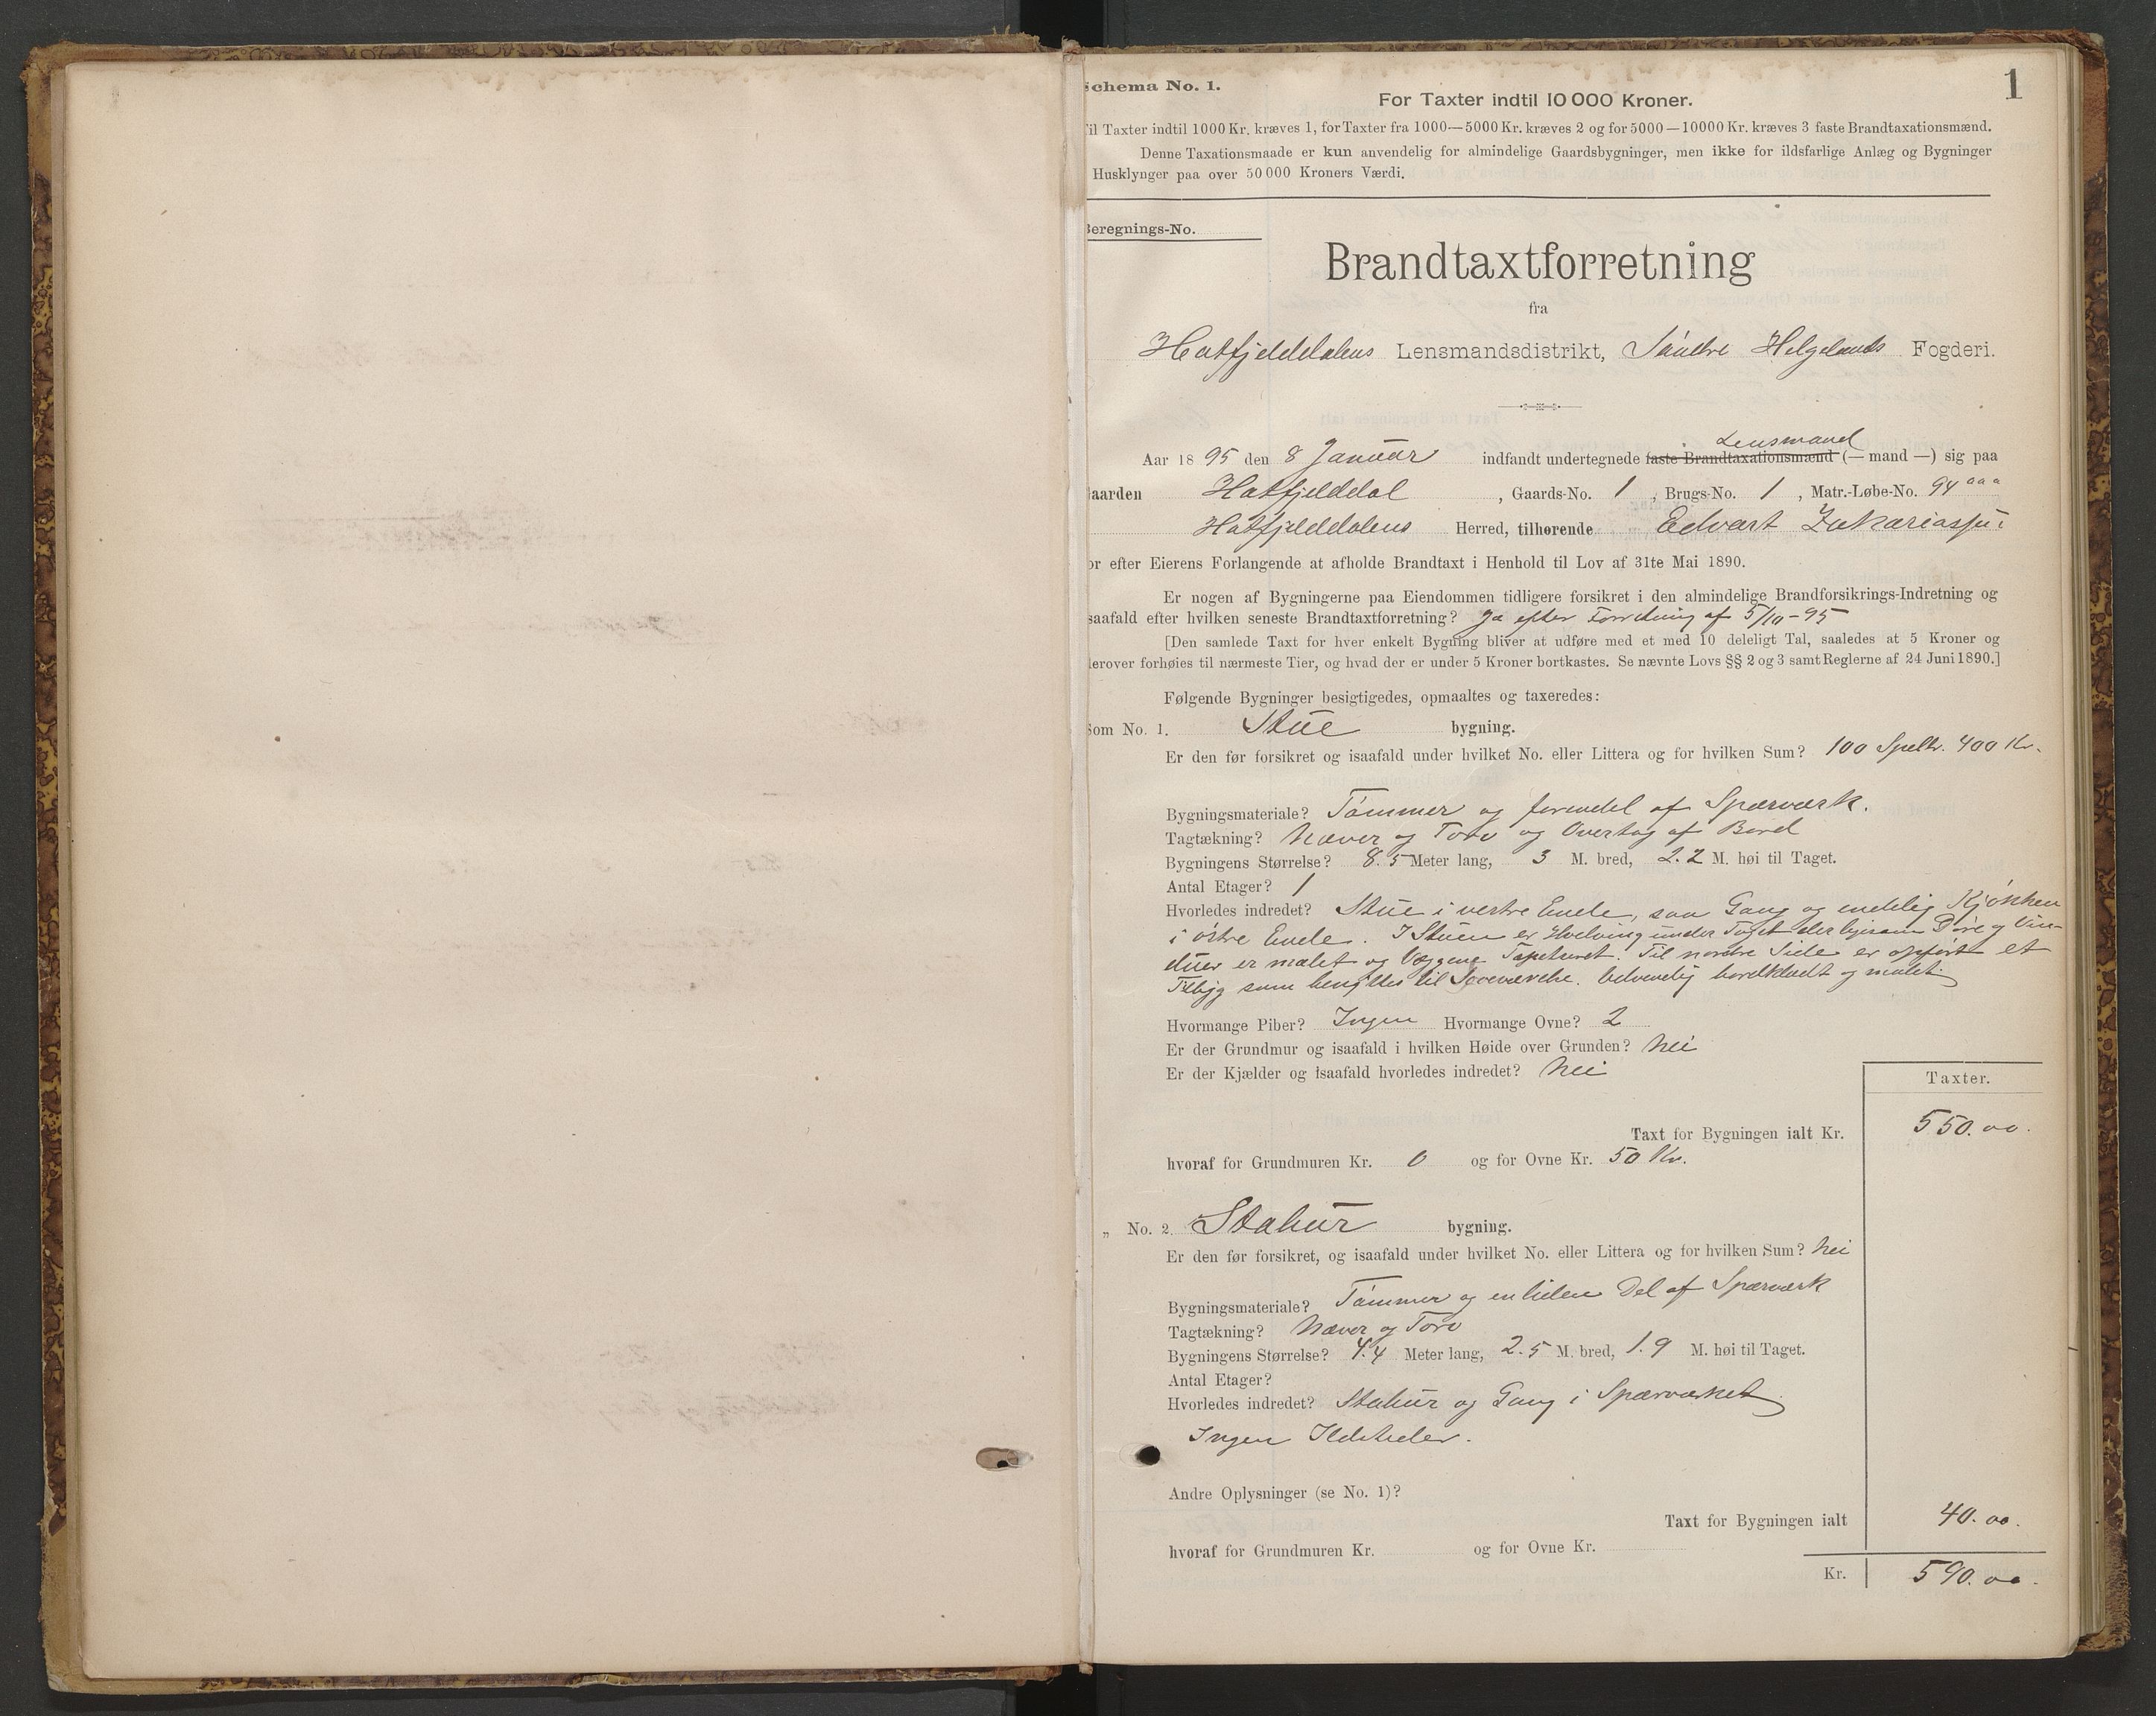 1
Schema No. 1.
For Taxter indtil 10 000 Kroner.
Til Taxter indtil 1000 Kr. kræves 1, for Taxter fra 1000—5000 Kr. kræves 2 og for 5000—10000 Kr. kræves 3 faste Brandtaxationsmænd.
Denne Taxationsmaade er kun anvendelig for almindelige Gaardsbygninger, men ikke for ildsfarlige Anlæg og Bygninger
Husklynger paa over 50 000 Kroners Værdi.
Beregnings-No.
Brandtaxtforretning
fra
Hatfjelddalens Lensmandsdistrikt, Søndre Helgelands Fogderi.
Lensmand
Aar 1895 den 8 Januar indfandt undertegnede faste Brandtaxationsmænd (— mand —) sig paa
Gaarden Hatfjelddal, Gaards-No. 1, Brugs-No. 1, Matr.-Løbe-No. 94 aaa
Hatfjelddalens Herred, tilhørende Edvart Zakariassen
for efter Eierens Forlangende at afholde Brandtaxt i Henhold til Lov af 31te Mai 1890.
Er nogen af Bygningerne paa Eiendommen tidligere forsikret i den almindelige Brandforsikrings-Indretning og
isaafald efter hvilken seneste Brandtaxtforretning? Ja efter Forretning af 5/10-95
[Den samlede Taxt for hver enkelt Bygning bliver at udføre med et med 10 deleligt Tal, saaledes at 5 Kroner og
derover forhøies til nærmeste Tier, og hvad der er under 5 Kroner bortkastes. Se nævnte Lovs §§ 2 og 3 samt Reglerne af 24 Juni 1890.]
Følgende Bygninger besigtigedes, opmaaltes og taxeredes:
Som No. 1. Stue bygning.
Er den før forsikret og isaafald under hvilket No. eller Littera og for hvilken Sum? 100 Spdlr. 400 Kr.
Bygningsmateriale? Tømmer og forendel af Spærværk.
Tagtækning? Næver og Torv og Overtag af Bord
Bygningens Størrelse? 8.5 Meter lang, 3 M. bred, 2.2 M. høi til Taget.
Antal Etager? 1
Hvorledes indredet? Stue i vestre Ende, saa Gang og endelig Kjøkken
i østre Ende. I Stuen er Hvelving under Taget der ligesom Døre og Vin-
duer er malet og Væggene Tapetseret. Til nordre Side er opført et
Tilbyg som benyttes til Soveværelse. Udvendig bordklædt og malet.
Hvormange Piber? Ingen Hvormange Ovne? 2
Er der Grundmur og isaafald i hvilken Høide over Grunden? Nei
Er der Kjælder og isaafald hvorledes indredet? Nei
Taxter.
Taxt for Bygningen ialt Kr. 550.00.
hvoraf for Grundmuren Kr. 0 og for Ovne Kr. 50 Kr.
„ No. 2. Stabur bygning.
Er den før forsikret, og isaafald under hvilket No. eller Littera og for hvilken Sum? Nei
Bygningsmateriale? Tømmer og en liden Del af Spærværk
Tagtækning? Næver og Torv
Bygningens Størrelse? 4.4 Meter lang, 2.5 M. bred, 1.9 M. høi til Taget.
Antal Etager?
Hvorledes indredet? Stabur og Gang i Spærværket
Ingen Ildsteder.
Andre Oplysninger (se No. 1)?
Taxt for Bygningen ialt 40.00.
hvoraf for Grundmuren Kr. og for Ovne Kr.
Kr. 590.00.